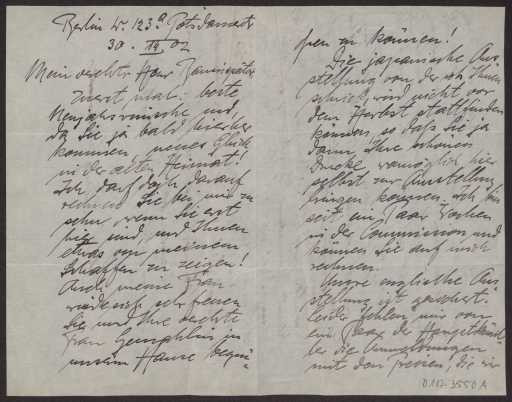 Berlin W. 123a Potsdamerstr
30. 12. 02
Mein verehrter Herr
zuerst mal: beste
Neujahrswünsche und,
da Sie ja bald hierher
kommen neues Glück
in der alten Heimat!
Ich darf doch darauf
rechnen Sie bei mir zu
sehn, wenn Sie erst
hier sind, und Ihnen
etwas von meinem
Schaffen zu zeigen!
Auch meine Frau
würde sich sehr freuen
Sie und Ihre verehrte
Frau Gemahlin in
unserm Hause begrü-
ßen zu können!
Die japanische Aus-
stellung von der ich Ihnen
schrieb, wird nicht vor
dem Herbst stattfinden
können, so daß Sie ja
dann Ihre schönen
Drucke womöglich hier
selbst zur Ausstellung
bringen können. Ich bin
seit ein paar Wochen
in der Commission und
können Sie auf mich
rechnen.
Unsre englische Aus-
stellung ist gesichert.
Leider fehlen mir von
ein paar der
die Anmeldungen
mit den Preisen, die wir
D.117-3550 A